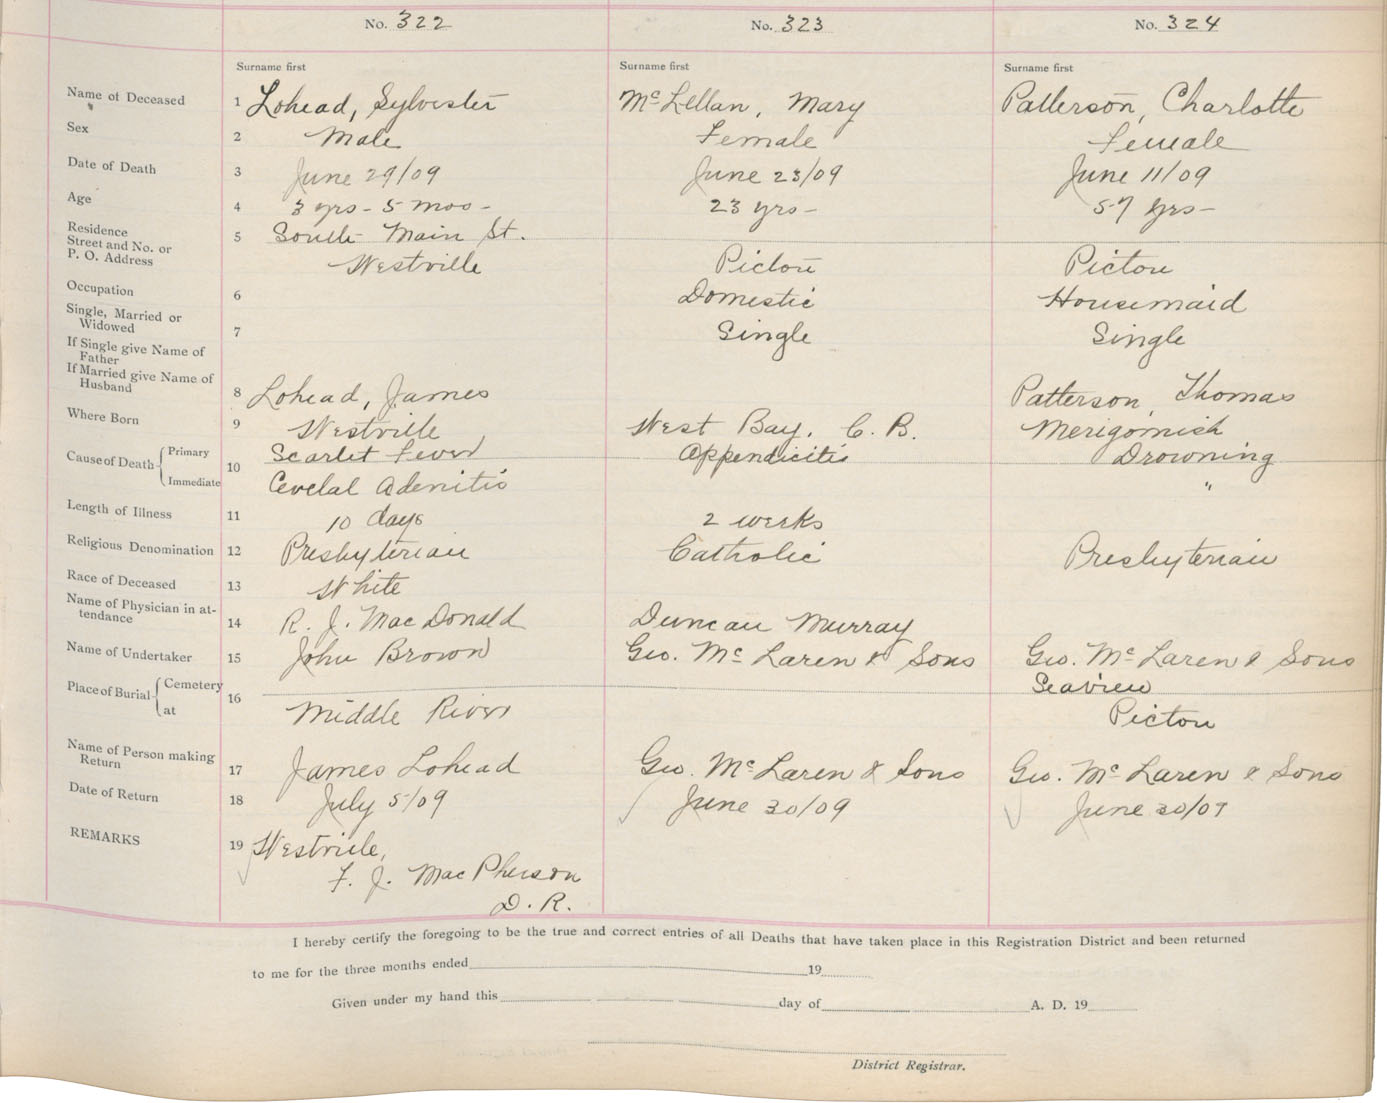 No. 322 No. 323 No. 324
Surname first Surname first Surname first
Name of Deceased 1 Lohead, Sylvester McLellan, Mary Patterson, Charlotte
Sex 2 Male Female Female
Date of Death 3 June 29/09 June 23/09 June 11/09
Age 4 3 yrs - 5 mos - 23 yrs - 57 yrs -
Residence 5 South Main St.
Street and No. or
P. O. Address Westville Pictou Pictou
Occupation 6 Domestic Housemaid
Single, Married or
Widowed 7 Single Single
If Single give Name of
Father
If Married give Name of
Husband 8 Lohead, James Patterson, Thomas
Where Born 9 Westville West Bay, C. B. Merigomish
Cause of Death Primary 10 Scarlet Fever Appendicitis Drowning
Immediate Cevelal Adenitis "
Length of Illness 11 10 days 2 weeks
Religious Denomination 12 Presbyterian Catholic Presbyterian
Race of Deceased 13 White
Name of Physician in at-
tendance 14 R. J. MacDonald Duncan Murray
Name of Undertaker 15 John Brown Geo. McLaren & Sons Geo. McLaren & Sons
Place of Burial Cemetery 16 Seaview
at Middle River Pictou
Name of Person making
Return 17 James Lohead Geo. McLaren & Sons Geo. McLaren & Sons
Date of Return 18 July 5/09 June 30/09 June 30/09
REMARKS 19 Westville,
F. J. MacPherson
D. R.
I hereby certify the foregoing to be the true and correct entries of all Deaths that have taken place in this Registration District and been returned
to me for the three months ended 19
Given under my hand this day of A. D. 19
District Registrar.